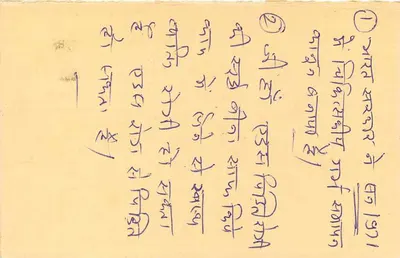 ① भारत सरकार ने सन 1971
में चिकित्सकीय गर्भ समापन
कानून बनाया है।
② जी हाँ एडस पिड़ित रोगी
की सुई बीना साफ किये
काम में लेने से स्वस्थ
व्यक्ति रोगी हो सकता
है एडस रोग से पिड़ित
हो सकता है।